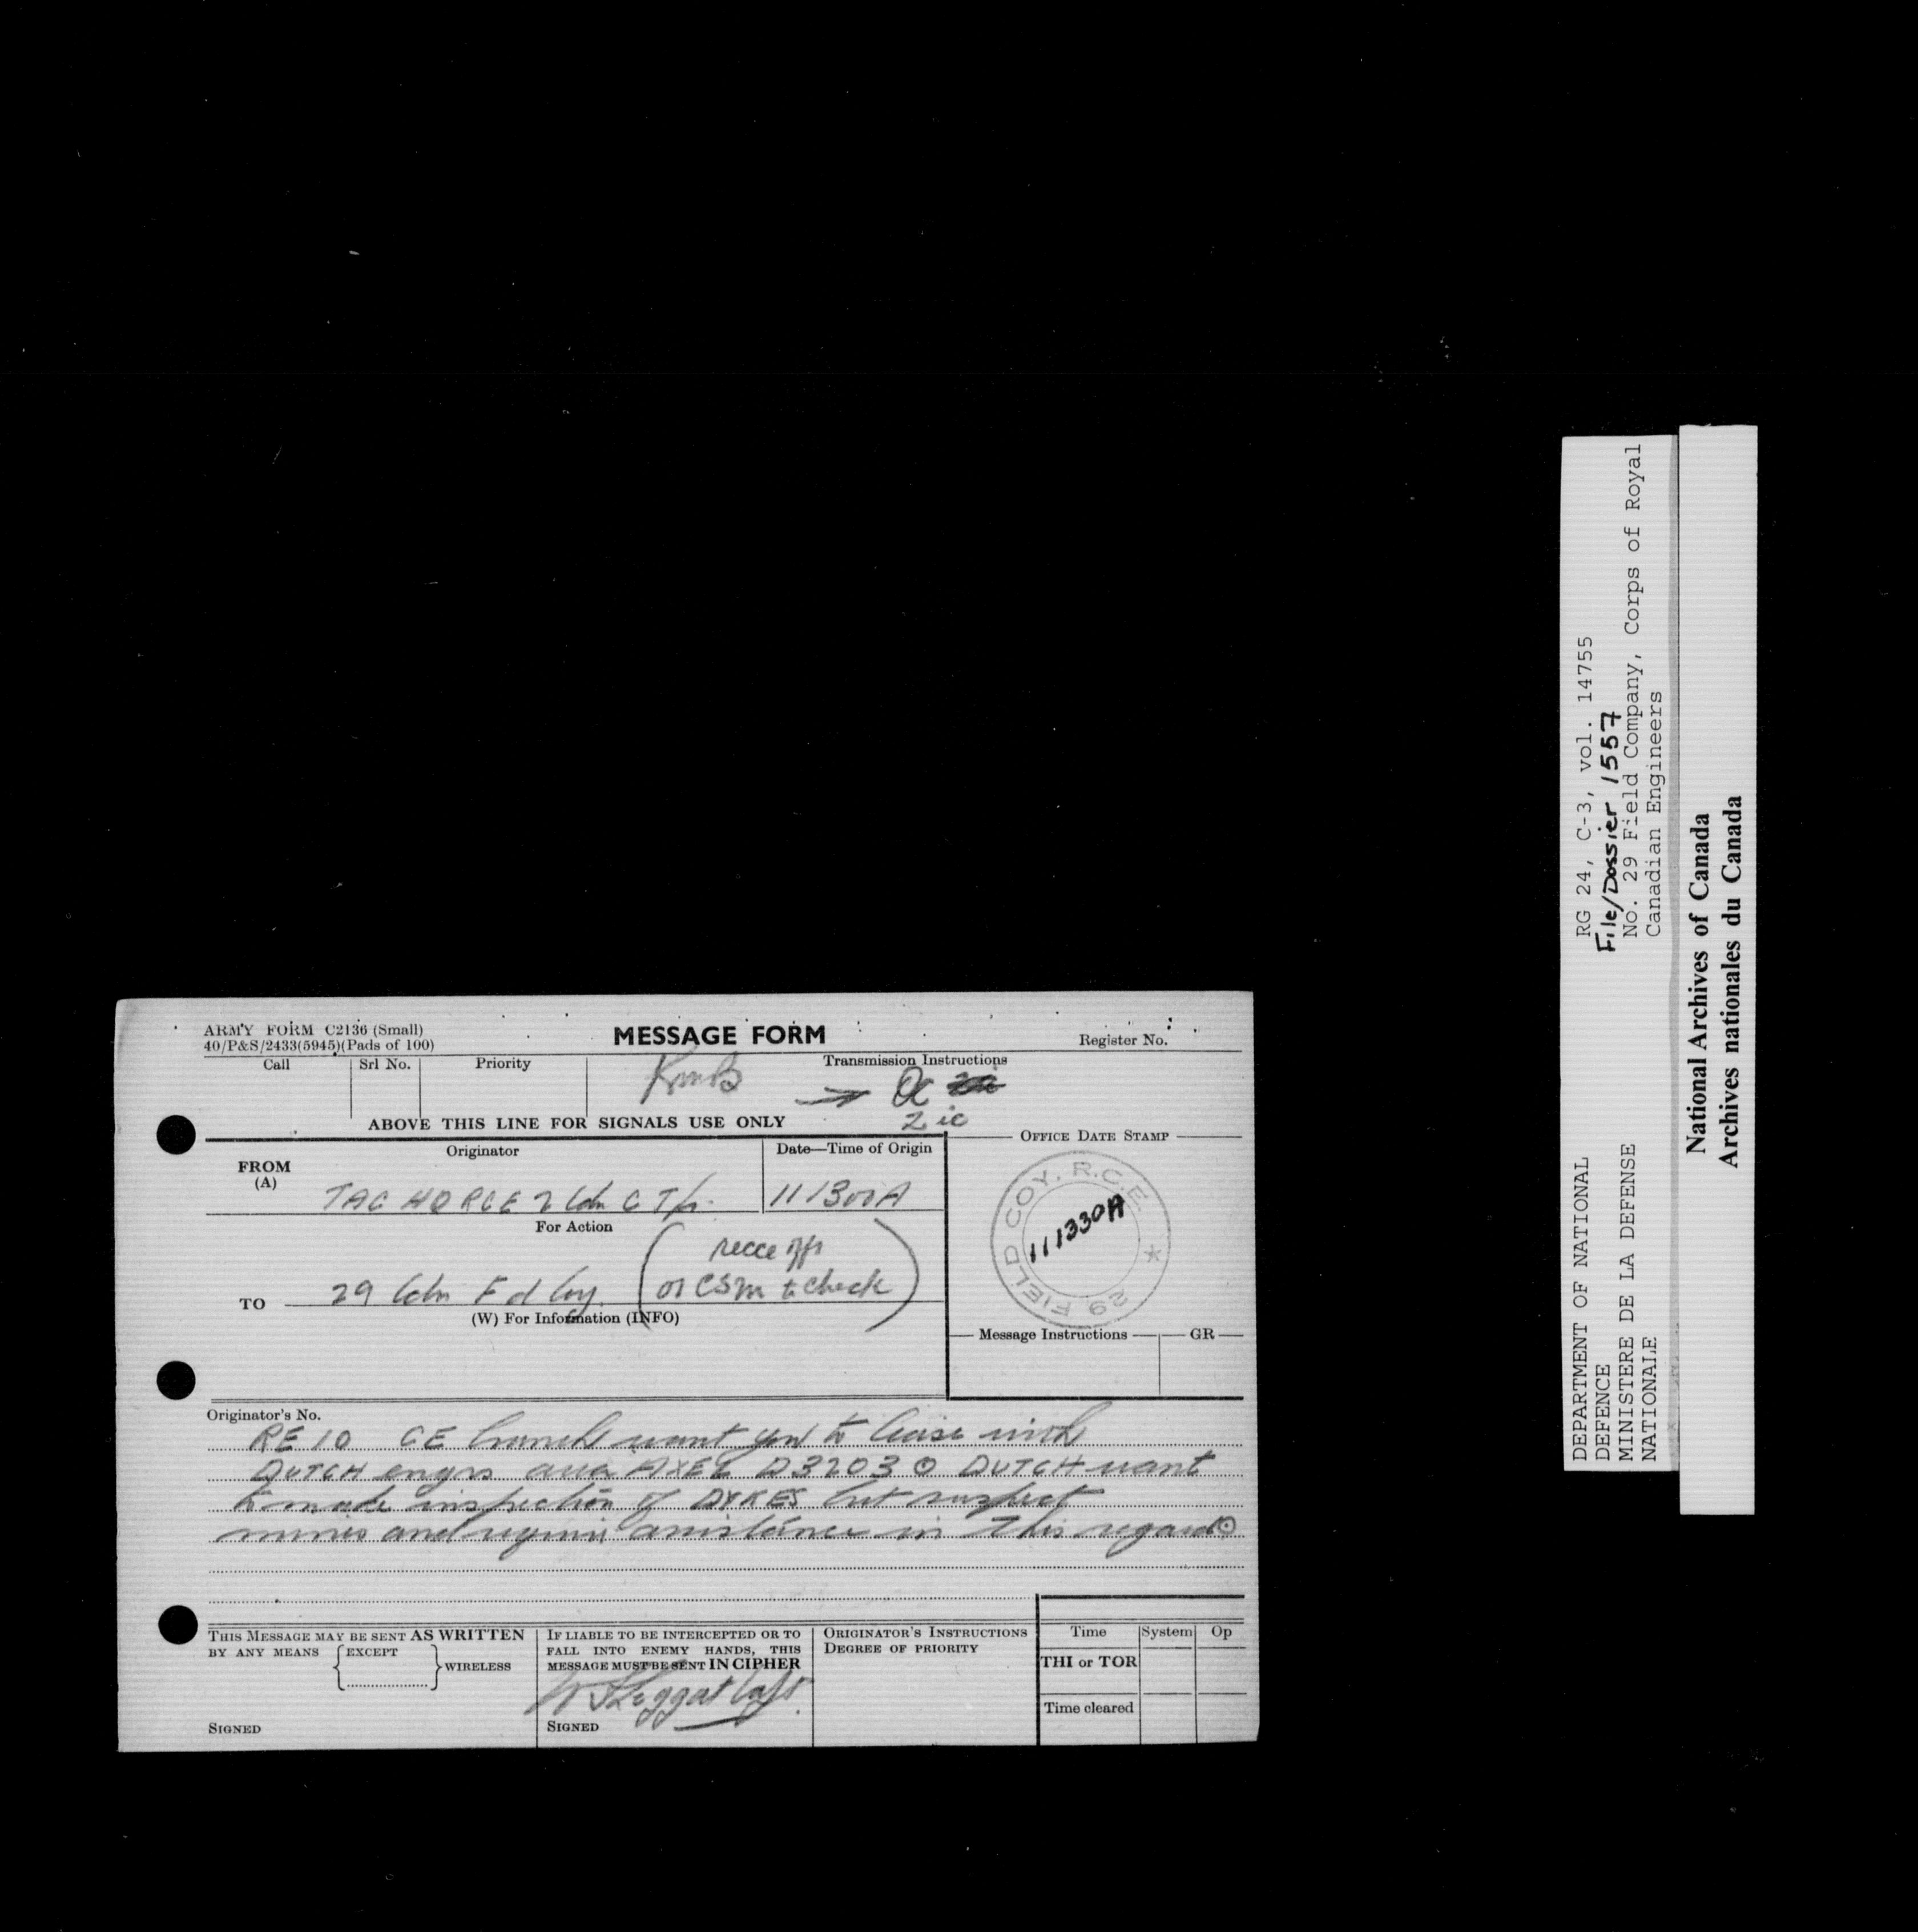 ARMY FORM C2136 (Small)
40/P&S/2433(5945)(Pads of 100)
MESSAGE FORM
Register No.
Call
Srl No.
Priority
Transmission Instructions
2 ic
ABOVE THIS LINE FOR SIGNALS USE ONLY
FROM
(A)
Originator
Date—Time of Origin
TAC HQ RCE 2 Cdn C Tps
111300A
OFFICE DATE STAMP
29 FIELD COY. R.C.E.
111330A
For Action
TO
29 Cdn Fd Coy.
(recce offr
or CSM to check)
(W) For Information (INFO)
Message Instructions
GR
Originator's No.
RE 10 CE branch want you to liaise with
DUTCH engrs area AXEL D3203 ⊙ DUTCH want
to make inspection of DYKES but suspect
mines and require assistance in this regard ⊙
THIS MESSAGE MAY BE SENT AS WRITTEN
BY ANY MEANS
EXCEPT
WIRELESS
SIGNED
IF LIABLE TO BE INTERCEPTED OR TO
FALL INTO ENEMY HANDS, THIS
MESSAGE MUST BE SENT IN CIPHER
Capt
SIGNED
ORIGINATOR'S INSTRUCTIONS
DEGREE OF PRIORITY
Time
System
Op
THI or TOR
Time cleared
DEPARTMENT OF NATIONAL
DEFENCE
MINISTERE DE LA DEFENSE
NATIONALE
RG 24, C-3, vol. 14755
File/Dossier 1557
No. 29 Field Company, Corps of Royal
Canadian Engineers
National Archives of Canada
Archives nationales du Canada